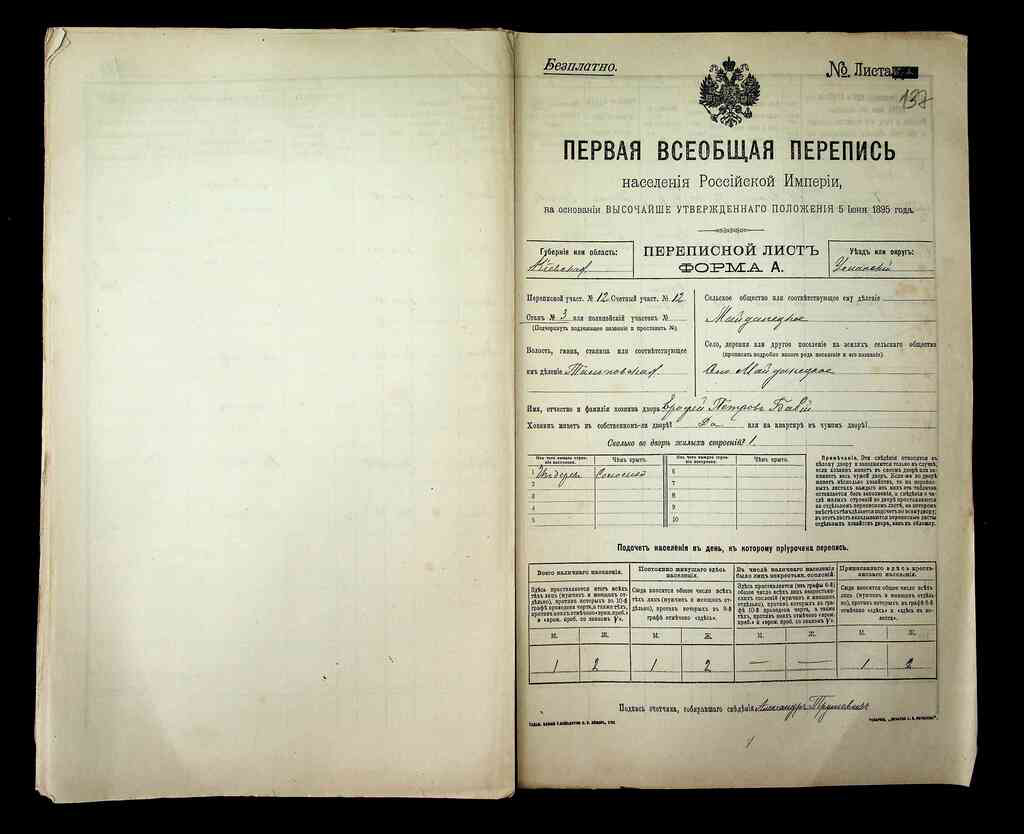 Безплатно.
№ Листа
137
ПЕРВАЯ ВСЕОБЩАЯ ПЕРЕПИСЬ
населенія Россійской Имперіи,
на основаніи ВЫСОЧАЙШЕ УТВЕРЖДЕННАГО ПОЛОЖЕНІЯ 5 Іюня 1895 года.
Губернія или область:
Кіевская
ПЕРЕПИСНОЙ ЛИСТЪ
ФОРМА А.
Уѣздъ или округъ:
Уманскій
Переписной участ. № 12 Счетный участ. № 12
Станъ № 3 или полицейскій участокъ №
(Подчеркнуть подлежащее названіе и проставить №)
Волость, гмина, станица или соотвѣтствующее
имъ дѣленіе
Сельское общество или соотвѣтствующее ему дѣленіе
Майданецкое
Село, деревня или другое поселеніе на земляхъ сельскаго общества
(прописать подробно какого рода поселеніе и его названіе)
Село Майданецкое
Имя, отчество и фамилія хозяина двора Ерофей Петровъ Бабій
Хозяинъ живетъ въ собственномъ-ли дворѣ? Да или на квартирѣ въ чужомъ дворѣ?
Сколько во дворѣ жилыхъ строеній? 1
Изъ чего каждое строеніе построено.
Чѣмъ крыто.
Изъ чего каждое строеніе построено.
Чѣмъ крыто.
1 Изъ дерева Соломою 6
2 7
3 8
4 9
5 10
Примѣчаніе. Эти свѣдѣнія относятся къ
цѣлому двору и заполняются только въ случаѣ,
если хозяинъ живетъ въ своемъ дворѣ или занимаетъ
весь чужой дворъ. Если-же во дворѣ
живетъ нѣсколько хозяйствъ, то на переписныхъ
листахъ каждаго изъ нихъ эта табличка
оставляется безъ заполненія, а свѣдѣнія о числѣ
жилыхъ строеній во дворѣ проставляются
на отдѣльномъ переписномъ листѣ, на которомъ
вмѣстѣ съ тѣмъ дѣлается подсчетъ по всему двору;
въ этотъ листъ вкладываются переписные листы
отдѣльныхъ хозяйствъ двора, какъ въ обложку.
Подсчетъ населенія въ день, къ которому пріурочена перепись.
Всего наличнаго населенія.
Постоянно живущаго здѣсь населенія.
Въ числѣ наличнаго населенія было лицъ некрестьян. сословій.
Приписаннаго здѣсь крестьянскаго населенія.
Здѣсь проставляется итогъ всѣхъ
тѣхъ лицъ (мужчинъ и женщинъ отдѣльно),
противъ которыхъ въ 10-й
графѣ проведена черта, а также тѣхъ,
противъ коихъ отмѣчено «врем. преб.»
и «врем. проб. со знакомъ V».
Сюда вносится общее число всѣхъ
тѣхъ лицъ (мужчинъ и женщинъ отдѣльно),
противъ которыхъ въ 9-й
графѣ отмѣчено «здѣсь».
Здѣсь проставляется (изъ графы 6-й)
общее число всѣхъ лицъ некрестьянскихъ
сословій (мужчинъ и женщинъ
отдѣльно), противъ которыхъ въ графѣ
10-й проведена черта, а также
тѣхъ, противъ коихъ отмѣчено «врем.
преб.» и «врем. проб. со знакомъ V».
Сюда вносится общее число всѣхъ
лицъ (мужчинъ и женщинъ отдѣльно),
противъ которыхъ въ графѣ 8-й
отмѣчено «здѣсь» и «здѣсь въ волости».
М. Ж. М. Ж. М. Ж. М. Ж.
1 2 1 2 — — 1 2
Подпись счетчика, собиравшаго свѣдѣнія Александръ